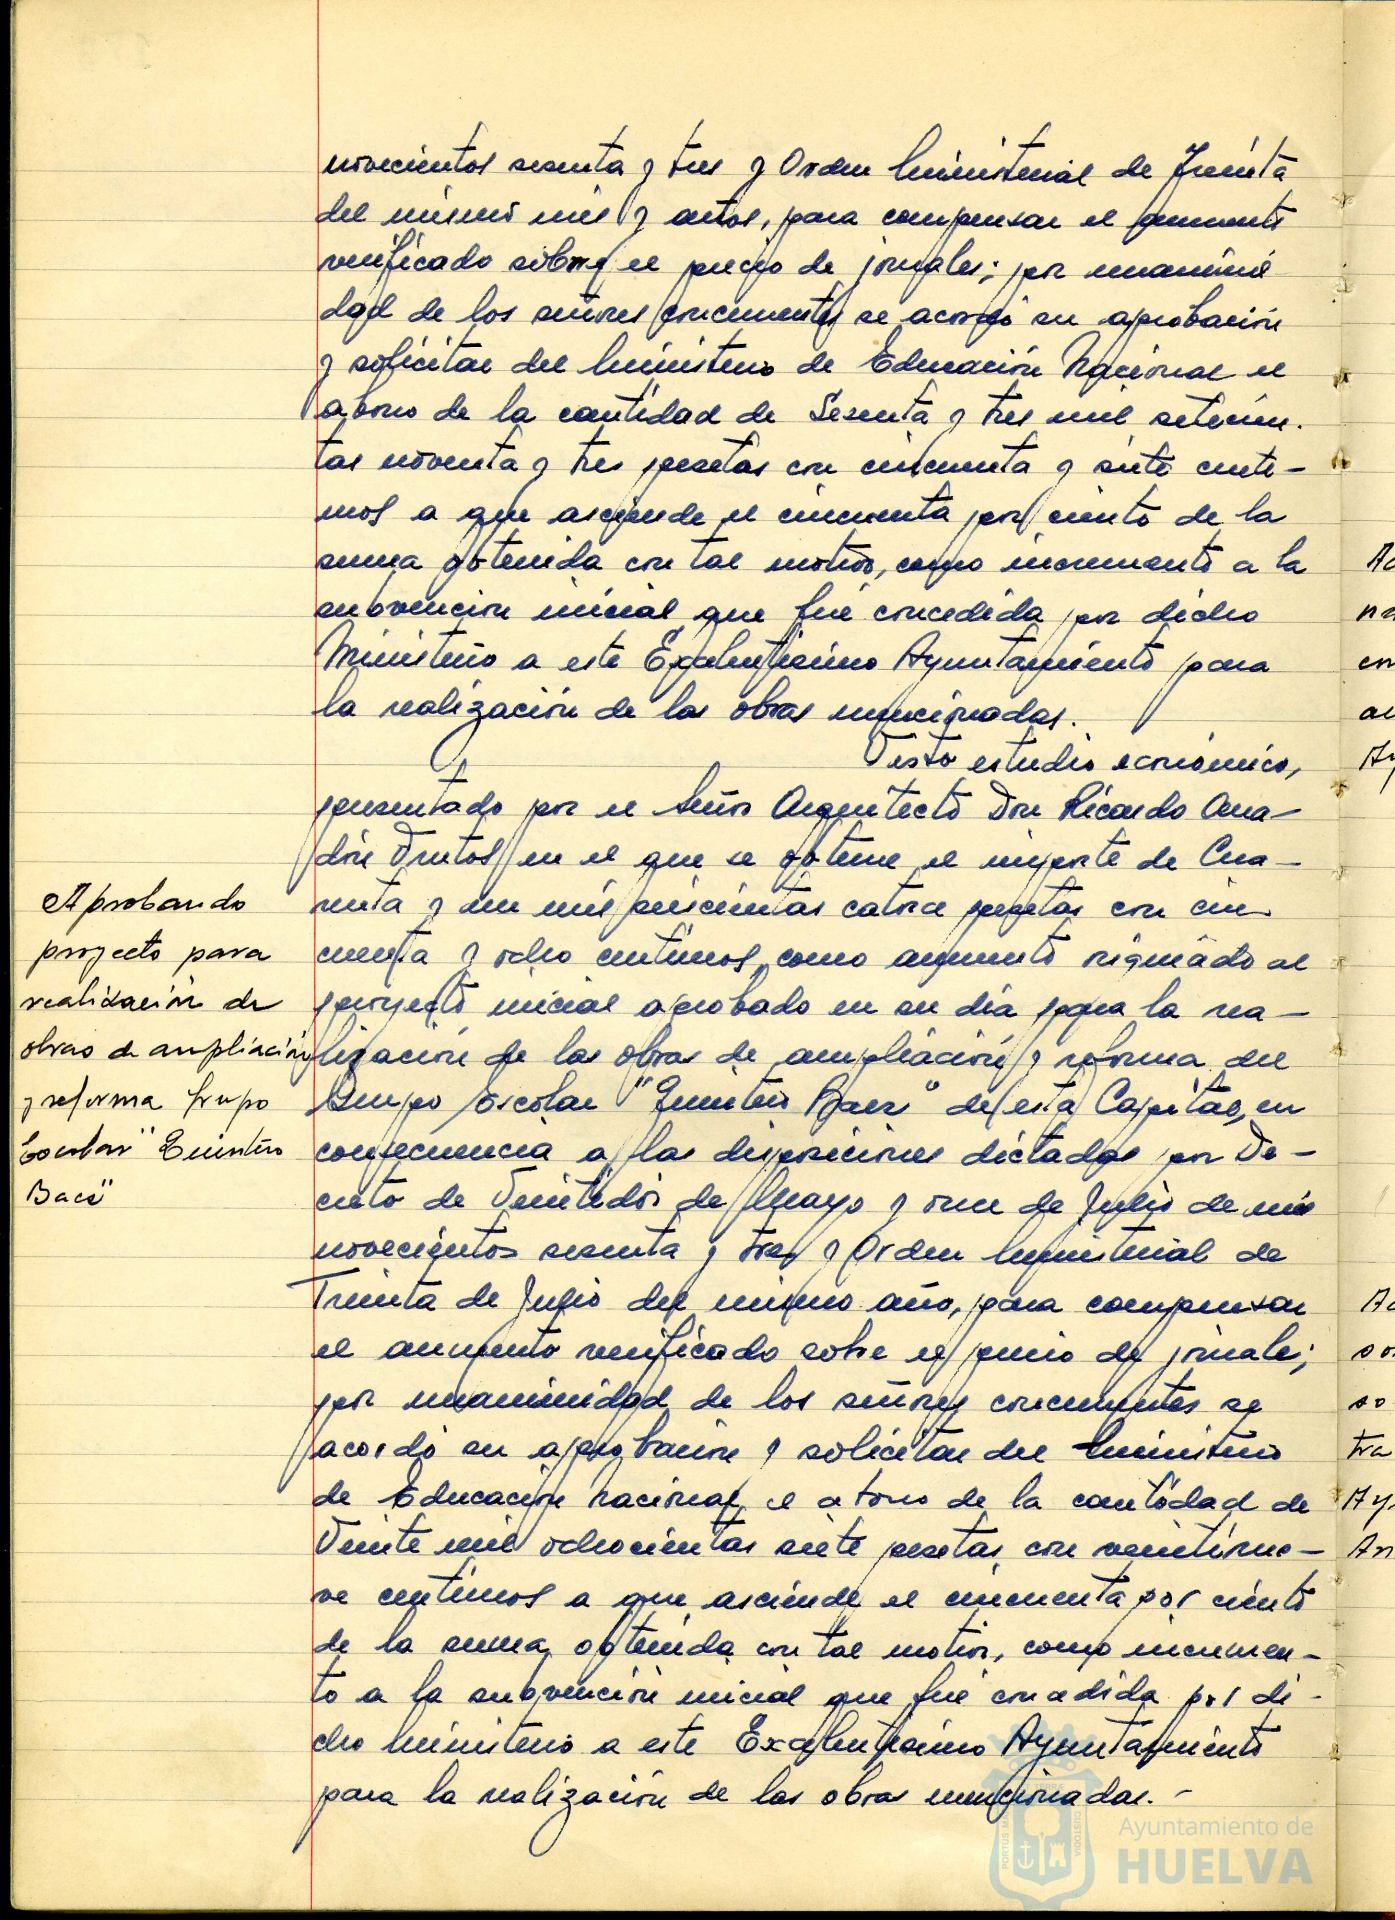 novecientos sesenta y tres y Orden Ministerial de Treinta
del mismo mes y años, para compensar el aumento
verificado sobre el precio de jornales; por unanimi
dad de los señores concurrentes se acordó su aprobación
y solicitar del Ministerio de Educación Nacional el
abono de la cantidad de Sesenta y tres mil setecien-
tas noventa y tres pesetas con cincuenta y siete cénti-
mos a que asciende el cincuenta por ciento de la
suma obtenida con tal motivo, como incremento a la
subvención inicial que fué concedida por dicho
Ministerio a este Excelentísimo Ayuntamiento para
la realización de las obras mencionadas.
Visto estudio económico,
presentado por el Señor Arquitecto Don Ricardo Ana-
dón Frutos en el que se obtiene el importe de Cua-
renta y un mil seiscientas catorce pesetas con cin-
cuenta y ocho céntimos, como aumento al
proyecto inicial aprobado en su día para la rea-
lización de las obras de ampliación y reforma del
Grupo Escolar "Quintero Baez" de esta Capital, en
consecuencia a las disposiciones dictadas por De-
creto de Veintidós de Mayo y once de Julio de mil
novecientos sesenta y tres y Orden Ministerial de
Treinta de Julio del mismo año, para compensar
el aumento verificado sobre el precio de jornales;
por unanimidad de los señores concurrentes se
acordó su aprobación y solicitar del Ministerio
de Educación Nacional el abono de la cantidad de
Veinte mil ochocientas siete pesetas con veintinue-
ve céntimos a que asciende el cincuenta por ciento
de la suma obtenida con tal motivo, como incremen-
to a la subvención inicial que fué concedida por di-
cho Ministerio a este Excelentísimo Ayuntamiento
para la realización de las obras mencionadas.-
Aprobando
proyecto para
realización de
obras de ampliación
y reforma Grupo
Escolar "Quintero
Baez"
Ayuntamiento de
HUELVA